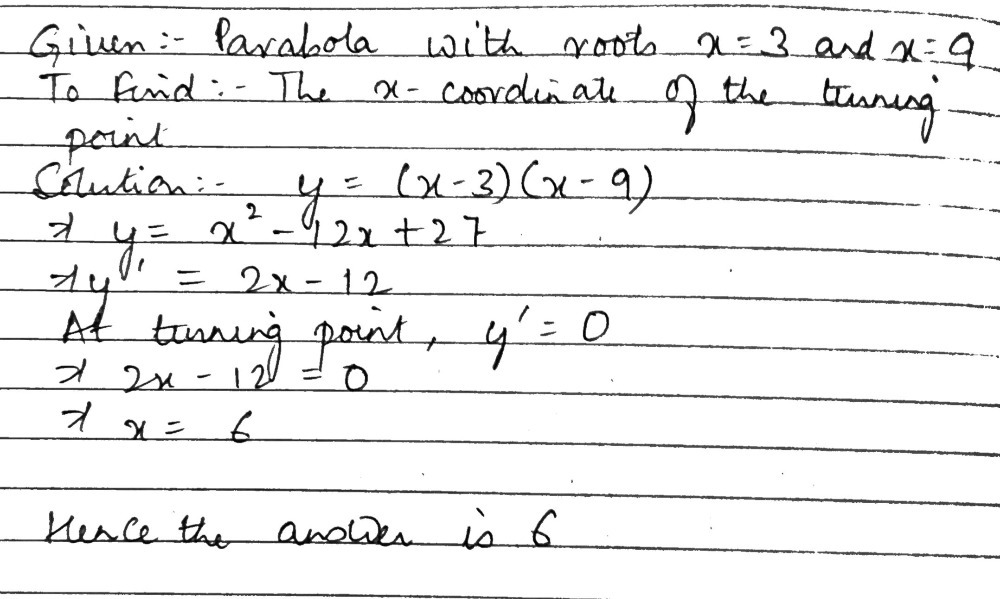 Given :- Parabola with roots x = 3 and x = 9
To Find :- The x-coordinate of the turning
point
Solution :- y = (x-3)(x-9)
⇒ y = x² - 12x + 27
⇒ y' = 2x - 12
At turning point, y' = 0
⇒ 2x - 12 = 0
⇒ x = 6
Hence the answer is 6